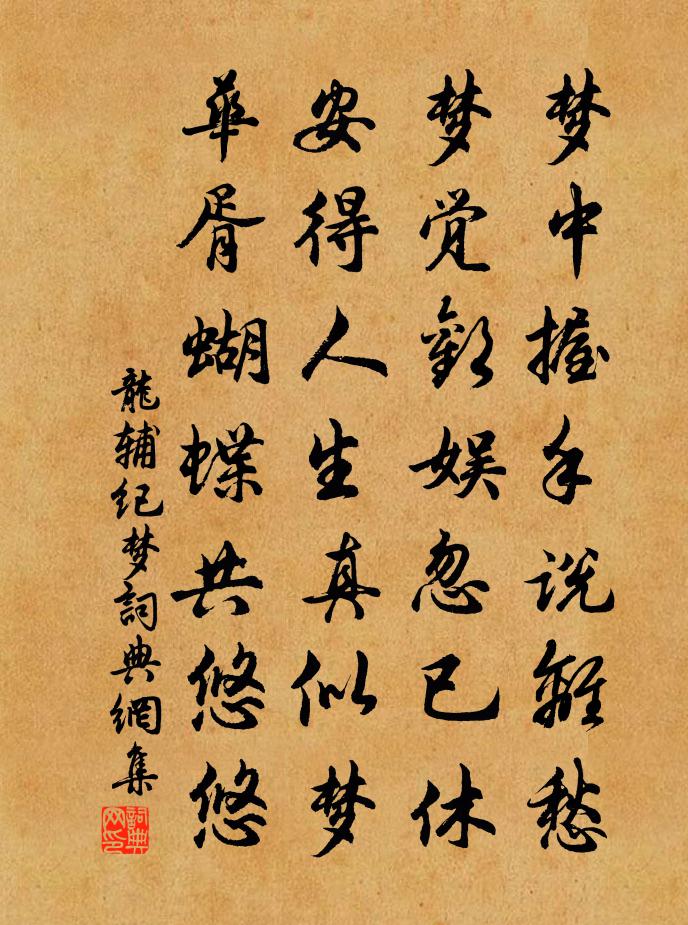 梦中握手说離愁
梦觉歡娱忽已休
安得人生真似梦
華胥蝴蝶共悠悠
龍辅纪梦詞典網集
詞典网印